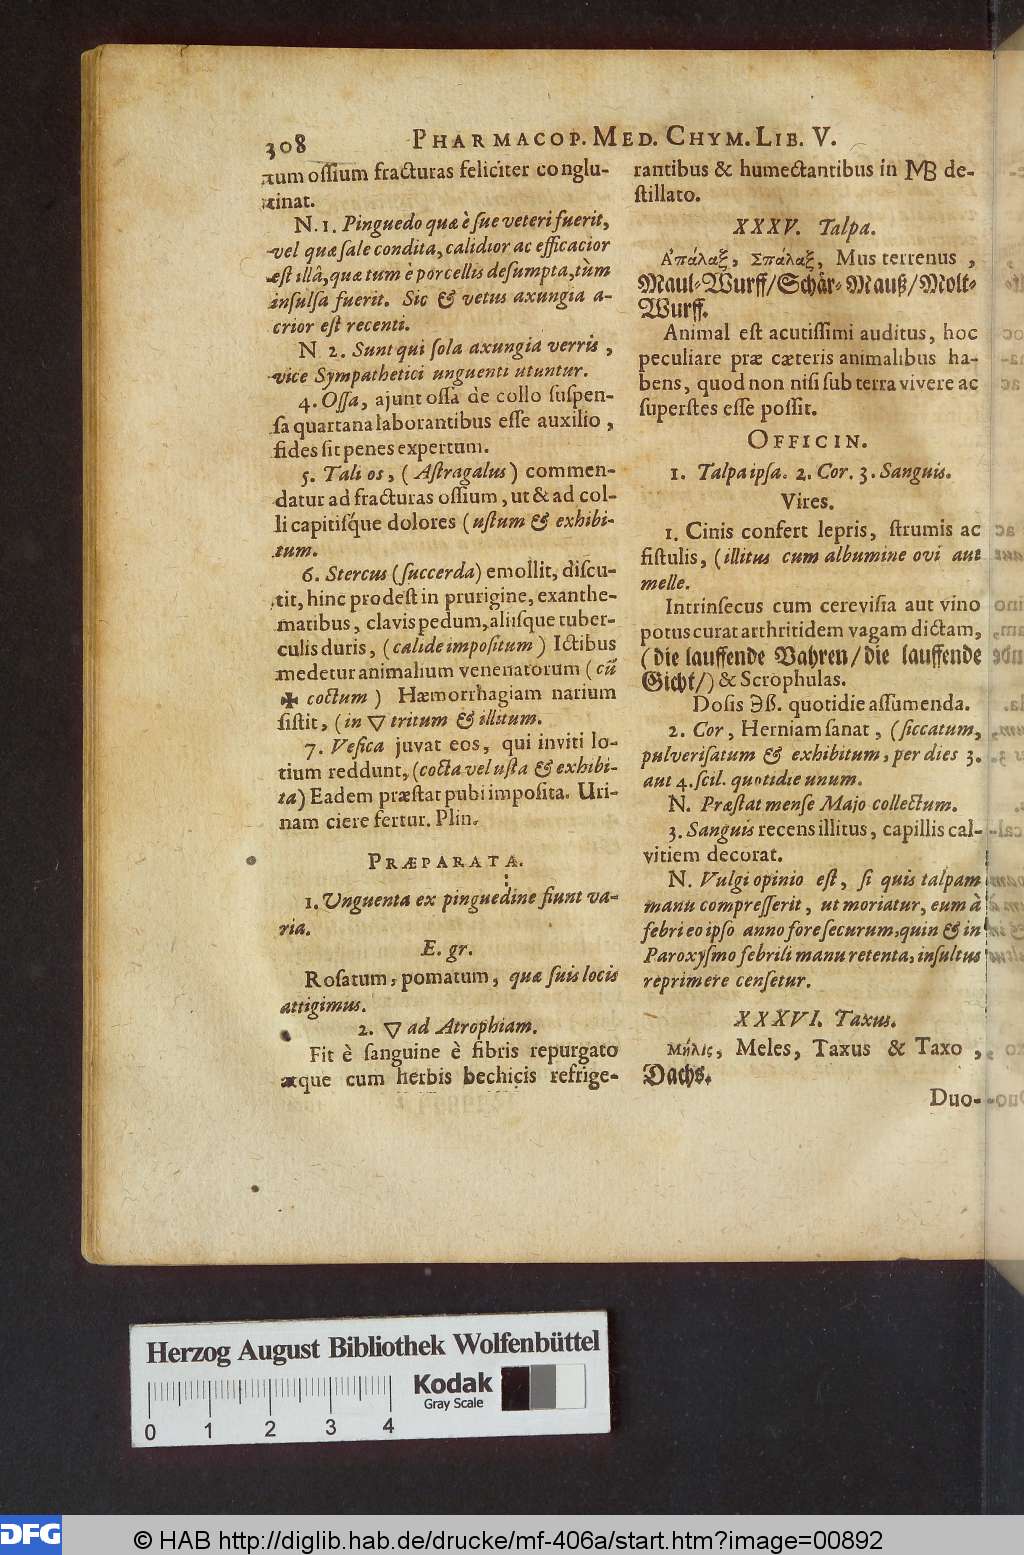 308 PHARMACOP. MED. CHYM. LIB. V.
tum oſſium fracturas feliciter conglu-
tinat.
N. 1. Pinguedo quæ è ſue veteri fuerit,
vel quæ ſale condita, calidior ac efficacior
eſt illâ, quæ tum è porcellis deſumpta, tùm
inſulſa fuerit. Sic & vetus axungia a-
crior eſt recenti.
N 2. Sunt qui ſola axungia verris,
vice Sympathetici unguenti utuntur.
4. Oſſa, ajunt oſſa de collo ſuſpen-
ſa quartana laborantibus eſſe auxilio,
fides ſit penes expertum.
5. Tali os, (Aſtragalus) commen-
datur ad fracturas oſſium, ut & ad col-
li capitiſque dolores (uſtum & exhibi-
tum.
6. Stercus (ſuccerda) emollit, diſcu-
tit, hinc prodeſt in prurigine, exanthe-
matibus, clavis pedum, aliiſque tuber-
culis duris, (calide impoſitum) Ictibus
medetur animalium venenatorum (cū
✠ coctum) Hæmorrhagiam narium
ſiſtit, (in ▽ tritum & illitum.
7. Veſica juvat eos, qui inviti lo-
tium reddunt, (cocta vel uſta & exhibi-
ta) Eadem præſtat pubi impoſita. Uri-
nam ciere fertur. Plin.
PRÆPARATA.
1. Unguenta ex pinguedine fiunt va-
ria.
E. gr.
Roſatum, pomatum, quæ ſuis locis
attigimus.
2. ▽ ad Atrophiam.
Fit è ſanguine è fibris repurgato
atque cum herbis bechicis refrige-
rantibus & humectantibus in MB de-
ſtillato.
XXXV. Talpa.
Ἀπάλαξ, Σπάλαξ, Mus terrenus,
Maul-Wurff/Schär-Mauß/Molt-
Wurff.
Animal eſt acutiſſimi auditus, hoc
peculiare præ cæteris animalibus ha-
bens, quod non niſi ſub terra vivere ac
ſuperſtes eſſe poſſit.
OFFICIN.
1. Talpa ipſa. 2. Cor. 3. Sanguis.
Vires.
1. Cinis confert lepris, ſtrumis ac
fiſtulis, (illitus cum albumine ovi aut
melle.
Intrinſecus cum cereviſia aut vino
potus curat arthritidem vagam dictam,
(die lauffende Vahren/die lauffende
Gicht/) & Scrophulas.
Doſis ℈ß. quotidie aſſumenda.
2. Cor, Herniam ſanat, (ſiccatum,
pulveriſatum & exhibitum, per dies 3.
aut 4. ſcil. quotidie unum.
N. Præſtat menſe Majo collectum.
3. Sanguis recens illitus, capillis cal-
vitiem decorat.
N. Vulgi opinio eſt, ſi quis talpam
manu compreſſerit, ut moriatur, eum à
febri eo ipſo anno fore ſecurum, quin & in
Paroxyſmo febrili manu retenta, inſultus
reprimere cenſetur.
XXXVI. Taxus.
Μήλις, Meles, Taxus & Taxo,
Dachs.
Duo-
Herzog August Bibliothek Wolfenbüttel
Kodak
Gray Scale
0 1 2 3 4
DFG © HAB http://diglib.hab.de/drucke/mf-406a/start.htm?image=00892